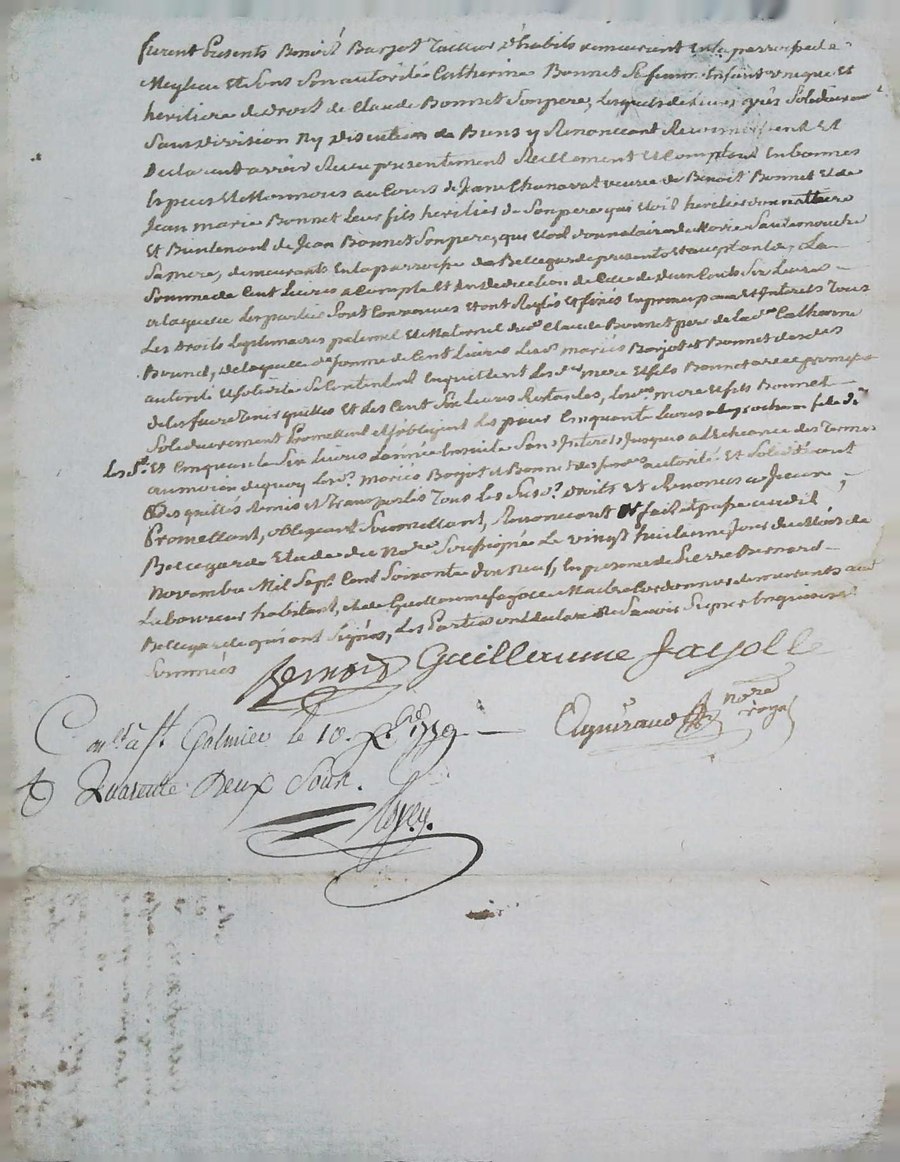 furent Presents Benoit Barjot Tailleur d'habits demeurant En la parroisse de
Meylieu Et Sous Son autorité Catherine Bonnet Sa femme Enfant unique Et
heritiere de droit de Claude Bonnet Son pere, lesquels de leurs grés Solidairement
Sans division Ny discution de Biens y Renonceant Reconnoissent Et
Declarent avoir Recu presentement Reellement Et Comptant En bonnes
Especes Et Monnoies au Cours de Jeane Chanavat veuve de Benoit Bonnet Et de
Jean marie Bonnet Leur fils heritier de Son pere qui Etoit heritier donnataire
Et Bientenant de Jean Bonnet Son pere, qui Etoit donnataire de Marie
Sa mere, demeurants En la parroisse de Bellegarde presents Et acceptants, La
Somme de Cent Livres a Compte Et En deduction de Celle de deux Cents Six Livres
a laquelle les parties Sont Convenues Et ont Reglés Et fixés En principaux Et Interets Tous
Les droits Legitimaires paternel Et Maternel dud. Claude Bonnet pere de lad. Catherine
Bonnet, de laquelle de Somme de Cent Livres Lesd. mariés Barjot Et Bonnet desdes
autorité Et Solidité Se Contentent En quittent lesd. mere Et fils Bonnet avec promesse
de les faire Tenir quittes Et des Cent Six Livres Restantes, lesd. mere Et fils Bonnet
Solidairement Promettent Et s'obligent les payer Cinquante Livres a la prochaine fete de
les St. Et Cinquante Six Livres L'année Ensuite Sans Interets Jusques a l'Echeance des Termes
au moien de quoy lesd. mariés Barjot Et Bonnet desdes autorité Et Solidité ont
Cedés quittés Remis Et Transportés Tous les Susd. droits Et Renoncés a Iceux
Promettant, obligeant Soumettant, Renonceant &c fait Et passé aud. lieu
Bellegarde Etude du Nore Soussigné Le vingt huitieme Jour du Mois de
Novembre Mil Sept Cent Soixante dix Neuf, En presence de Pierre Bernard
Laboureur habitant, Et de Guillaume fayolle Maitre Cordonnier demeurants aud.
Bellegarde qui ont Signés, Les Parties ont declaré Ne Savoir Signer Enquises Et
Sommées
Bernard Guillaume Fayolle
nore
royal
Con.lé à St. Galmier le 10. Xbre 1779.
R Quarente Deux Sous.